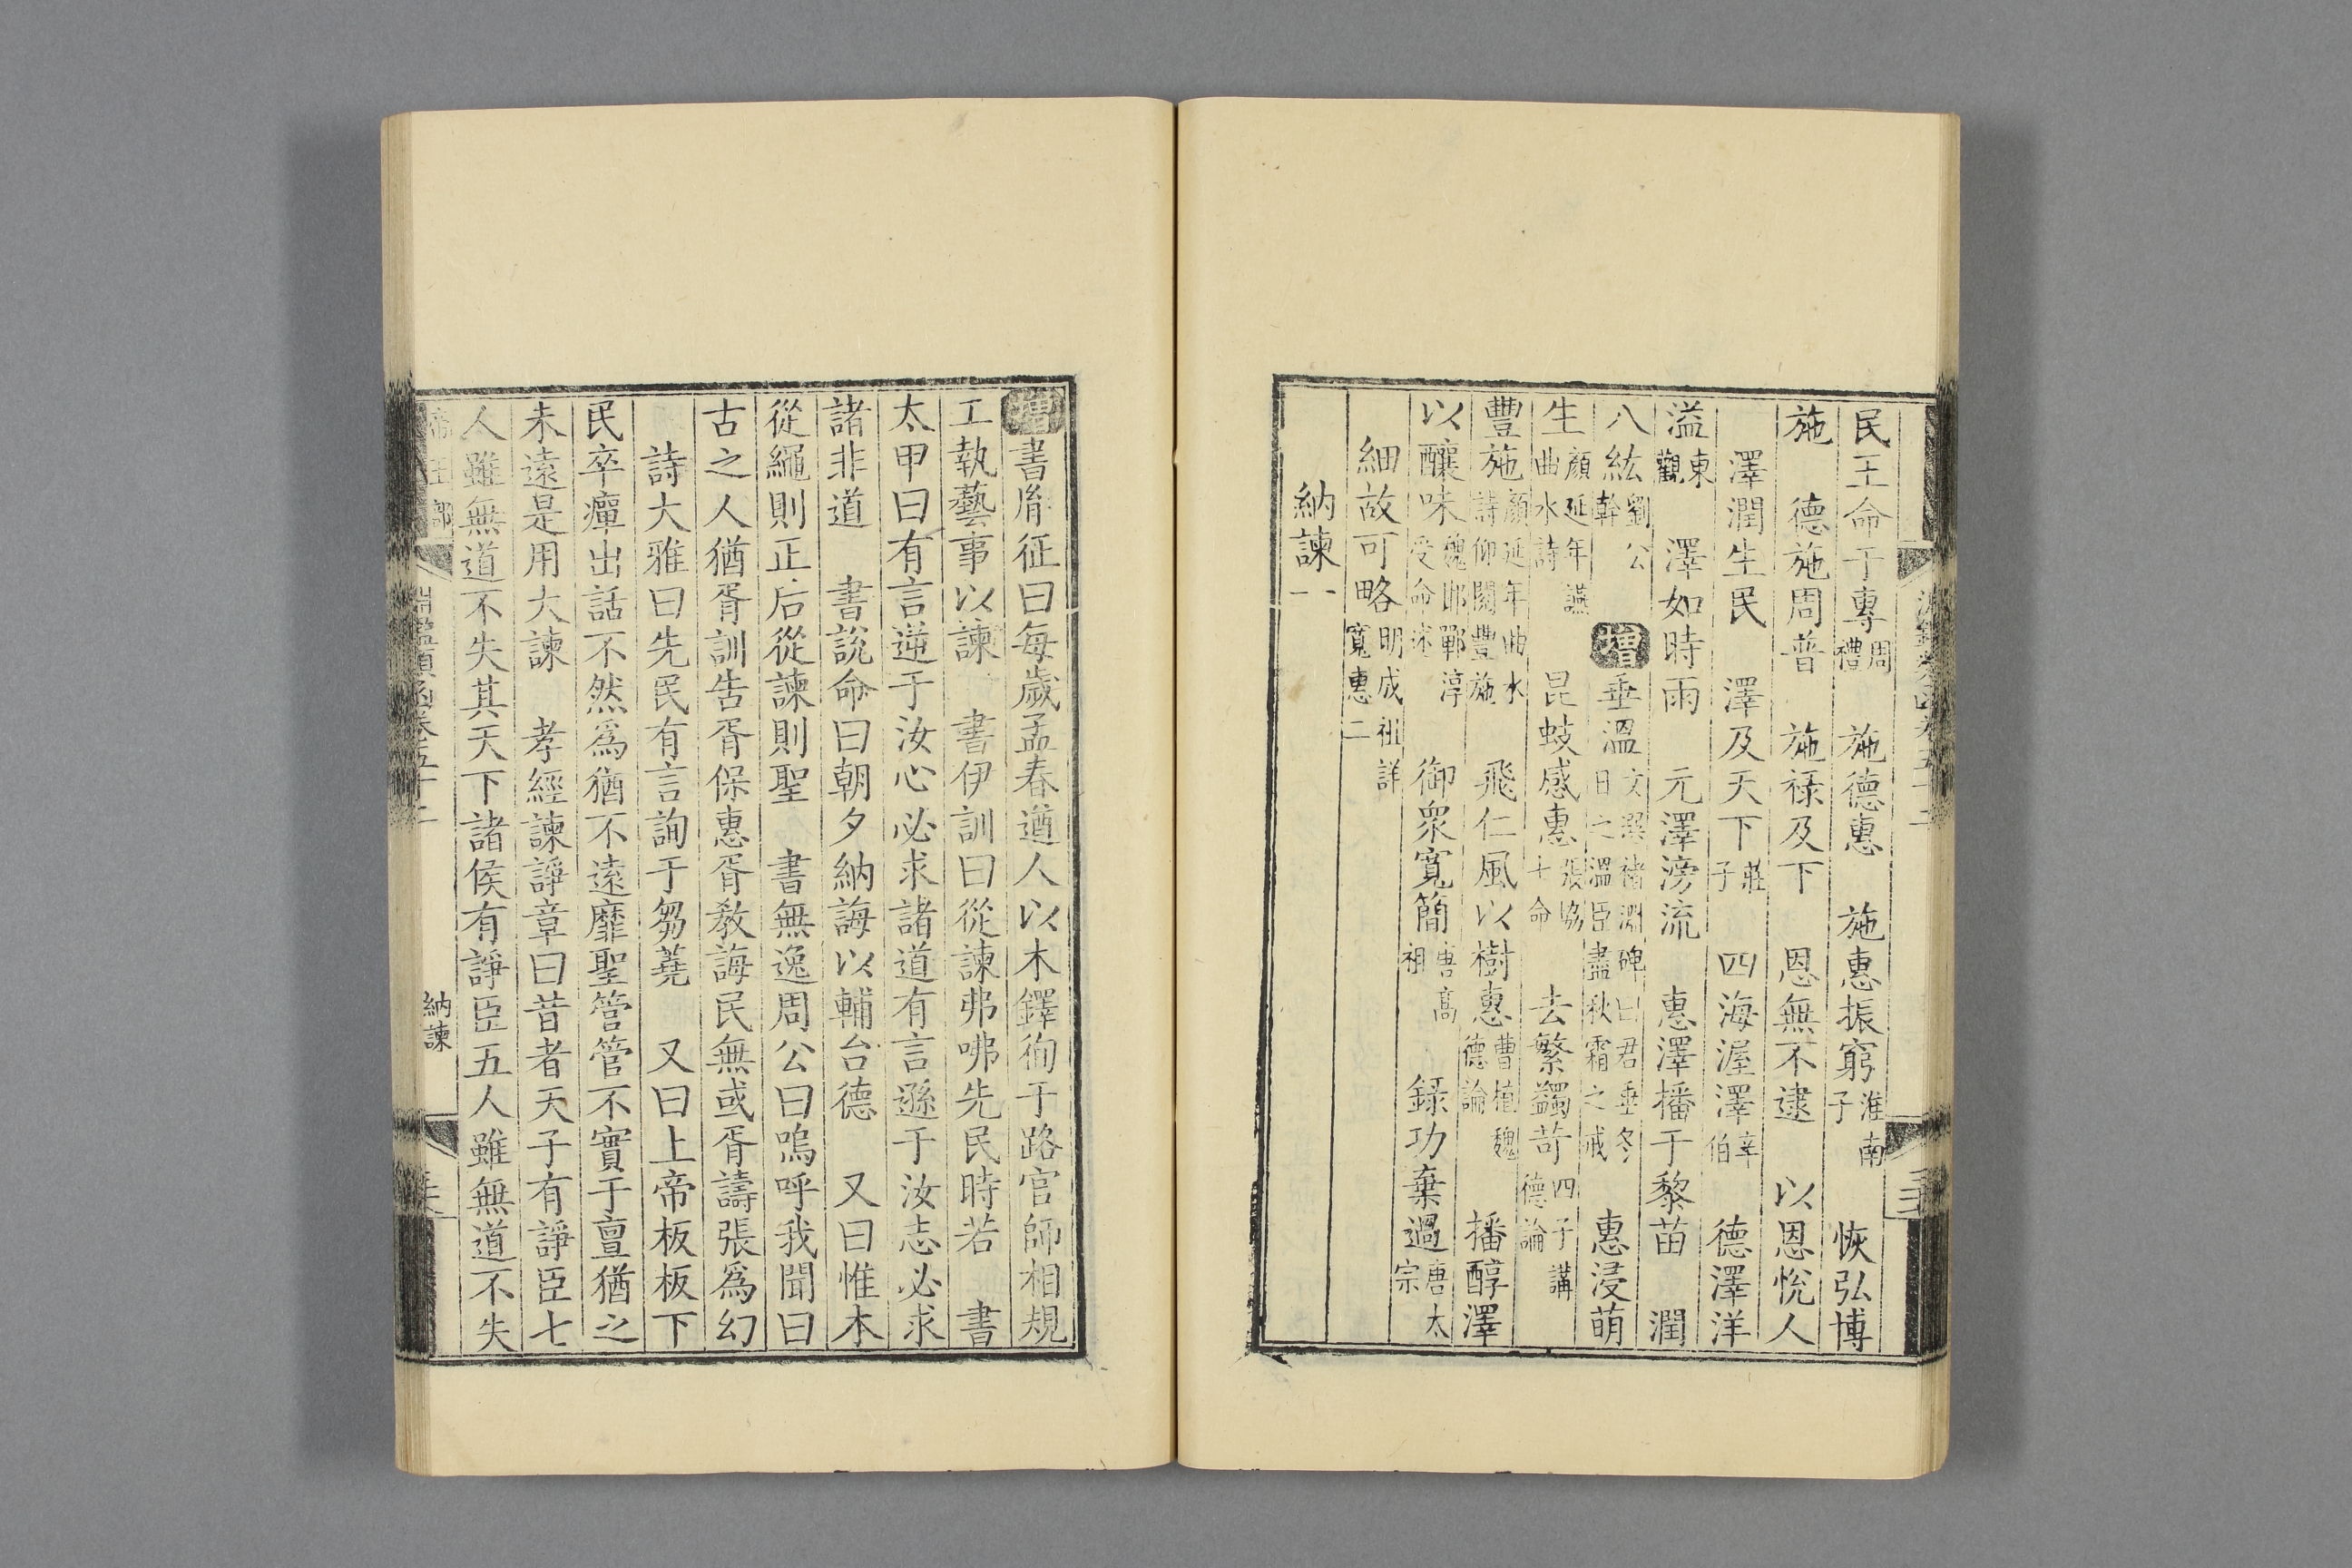 民王命于專周禮　施德惠　施惠振窮淮南子　恢弘博
施　德施周普　施祿及下　恩無不逮　以恩悅人
澤潤生民　澤及天下莊子　四海渥澤辛伯　德澤洋
溢東觀　澤如時雨　元澤滂流　惠澤播于黎苗　潤
八紘劉公幹　增垂溫文選褚淵碑曰君垂冬日之溫臣盡秋霜之戒　惠浸萌
生顏延年讌曲水詩　昆蚑感惠張協七命　去繁蠲苛四子講德論
豐施顏延年曲水詩仰閱豐施　飛仁風以樹惠曹植魏德論　播醇澤
以釀味魏邯鄲淳受命述　御衆寬簡唐高祖　錄功棄過唐太宗
細故可略明成祖詳寬惠二
納諫一
增書胤征曰每歲孟春遒人以木鐸徇于路官師相規
工執藝事以諫　書伊訓曰從諫弗咈先民時若　書
太甲曰有言逆于汝心必求諸道有言遜于汝志必求
諸非道　書說命曰朝夕納誨以輔台德　又曰惟木
從繩則正后從諫則聖　書無逸周公曰嗚呼我聞曰
古之人猶胥訓告胥保惠胥教誨民無或胥譸張爲幻
詩大雅曰先民有言詢于芻蕘　又曰上帝板板下
民卒癉出話不然爲猶不遠靡聖管管不實于亶猶之
未遠是用大諫　孝經諫諍章曰昔者天子有諍臣七
人雖無道不失其天下諸侯有諍臣五人雖無道不失
帝王部　淵鑑類函卷五十二　納諫